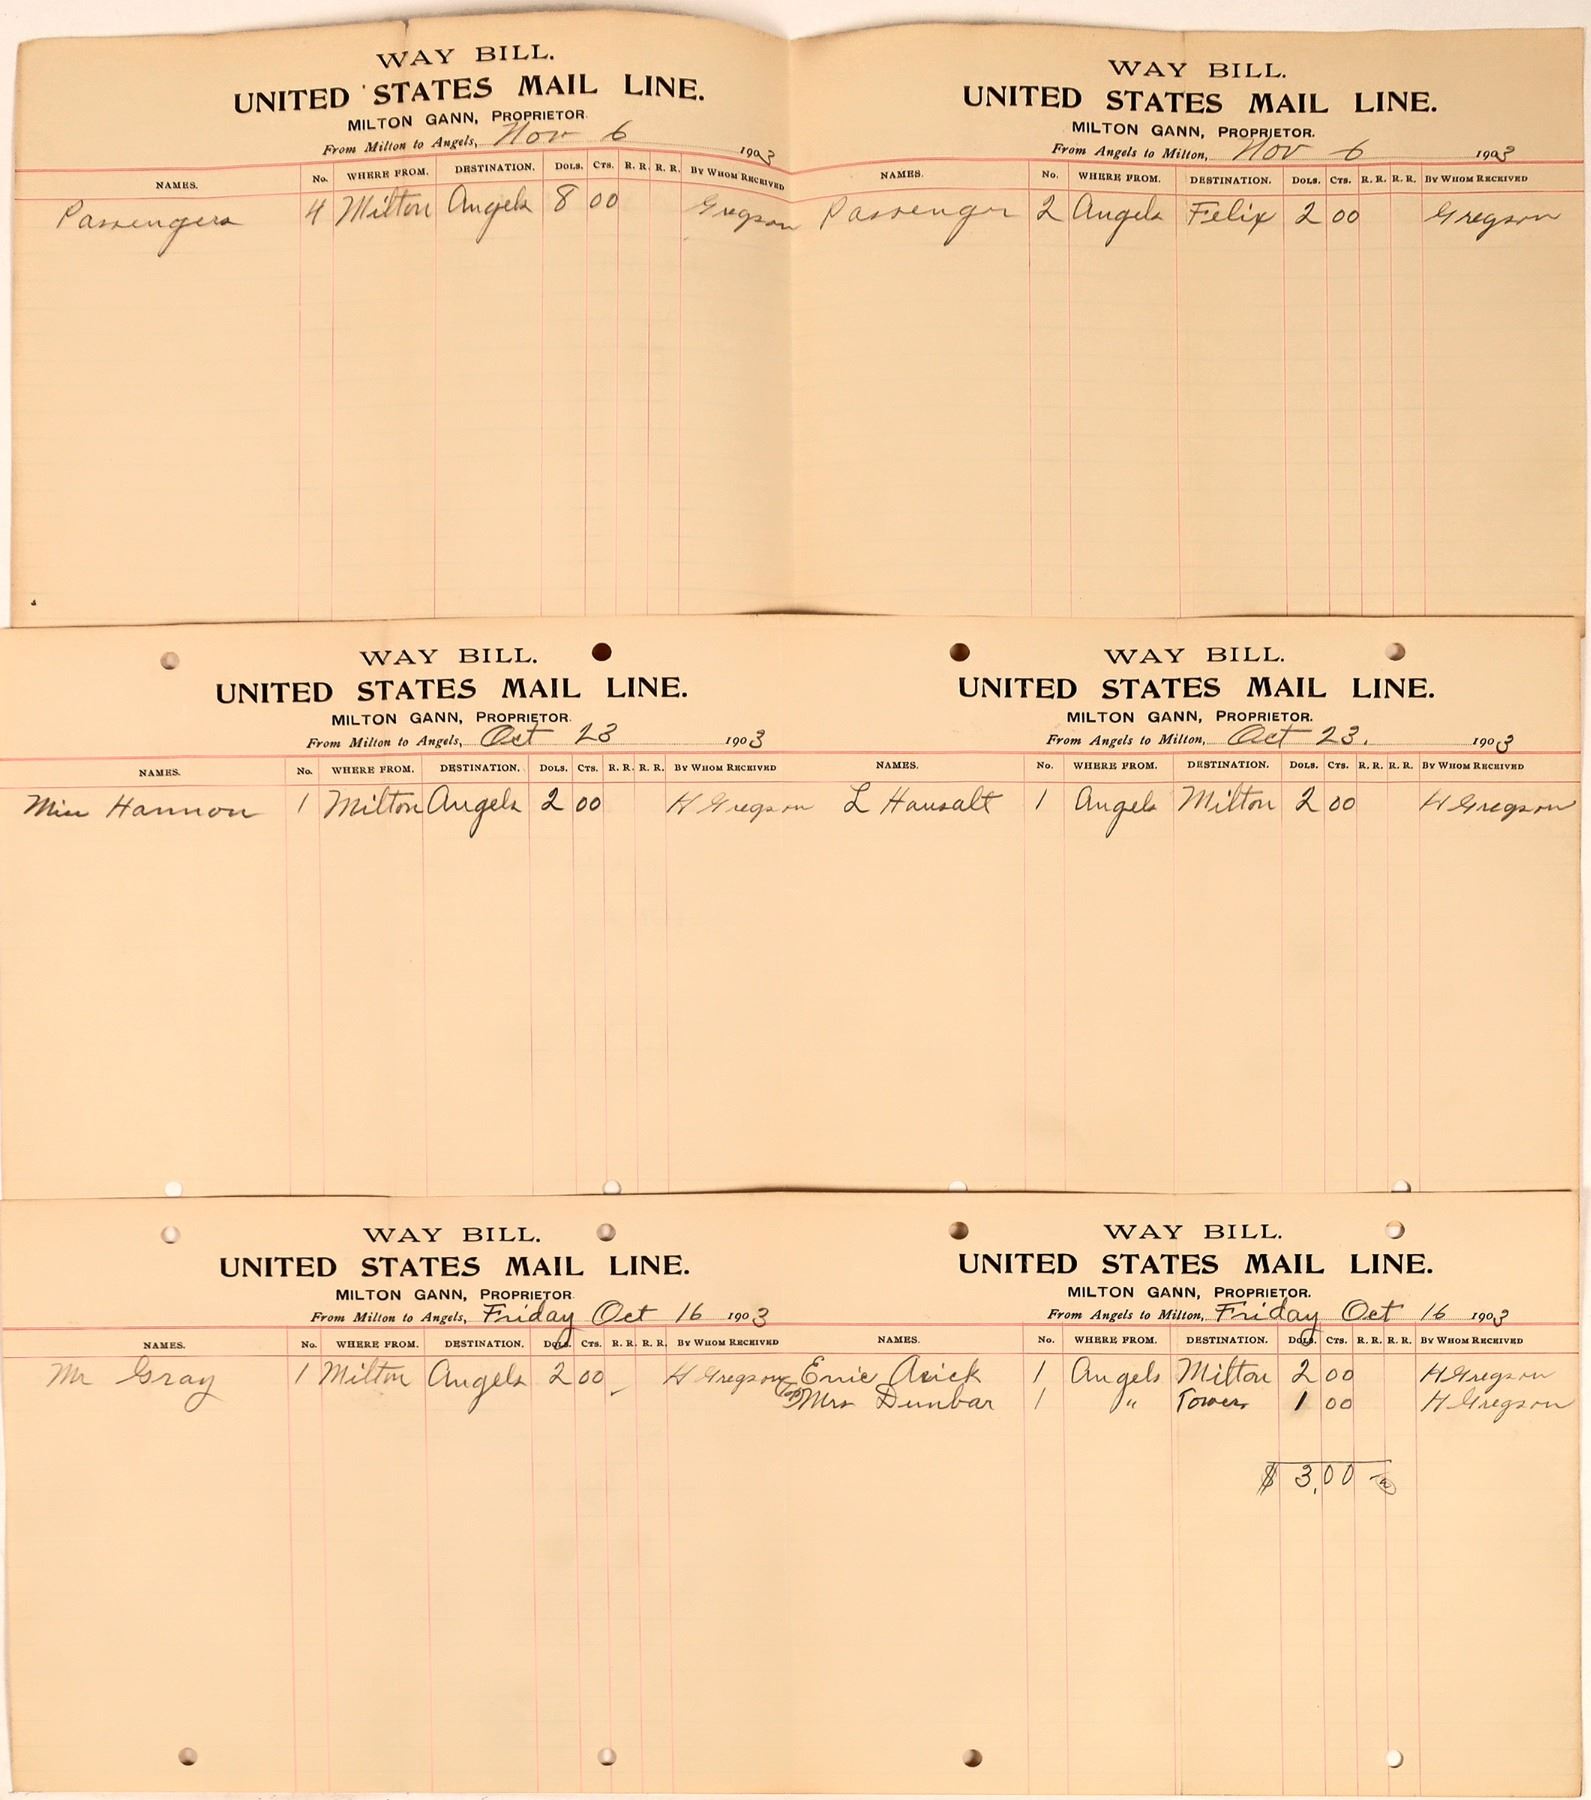 WAY BILL.
UNITED STATES MAIL LINE.
MILTON GANN, PROPRIETOR.
From Milton to Angels, Nov 6 1903
NAMES. No. WHERE FROM. DESTINATION. DOLS. CTS. R. R. R. R. BY WHOM RECEIVED
Passengers 4 Milton Angels 8 00 Gregson
WAY BILL.
UNITED STATES MAIL LINE.
MILTON GANN, PROPRIETOR.
From Angels to Milton, Nov 6 1903
NAMES. No. WHERE FROM. DESTINATION. DOLS. CTS. R. R. R. R. BY WHOM RECEIVED
Passenger 2 Angels Felix 2 00 Gregson
WAY BILL.
UNITED STATES MAIL LINE.
MILTON GANN, PROPRIETOR.
From Milton to Angels, Oct 23 1903
NAMES. No. WHERE FROM. DESTINATION. DOLS. CTS. R. R. R. R. BY WHOM RECEIVED
Miss Hannon 1 Milton Angels 2 00 H Gregson
WAY BILL.
UNITED STATES MAIL LINE.
MILTON GANN, PROPRIETOR.
From Angels to Milton, Oct 23. 1903
NAMES. No. WHERE FROM. DESTINATION. DOLS. CTS. R. R. R. R. BY WHOM RECEIVED
L Hausalt 1 Angels Milton 2 00 H Gregson
WAY BILL.
UNITED STATES MAIL LINE.
MILTON GANN, PROPRIETOR
From Milton to Angels, Friday Oct 16 1903
NAMES. No. WHERE FROM. DESTINATION. DOLS. CTS. R. R. R. R. BY WHOM RECEIVED
Mr Gray 1 Milton Angels 2 00 H Gregson
WAY BILL.
UNITED STATES MAIL LINE.
MILTON GANN, PROPRIETOR.
From Angels to Milton, Friday Oct 16 1903
NAMES. No. WHERE FROM. DESTINATION. DOLS. CTS. R. R. R. R. BY WHOM RECEIVED
1 Angels Milton 2 00 H Gregson
Mrs Dunbar 1 " Towers 1 00 H Gregson
$ 3,00